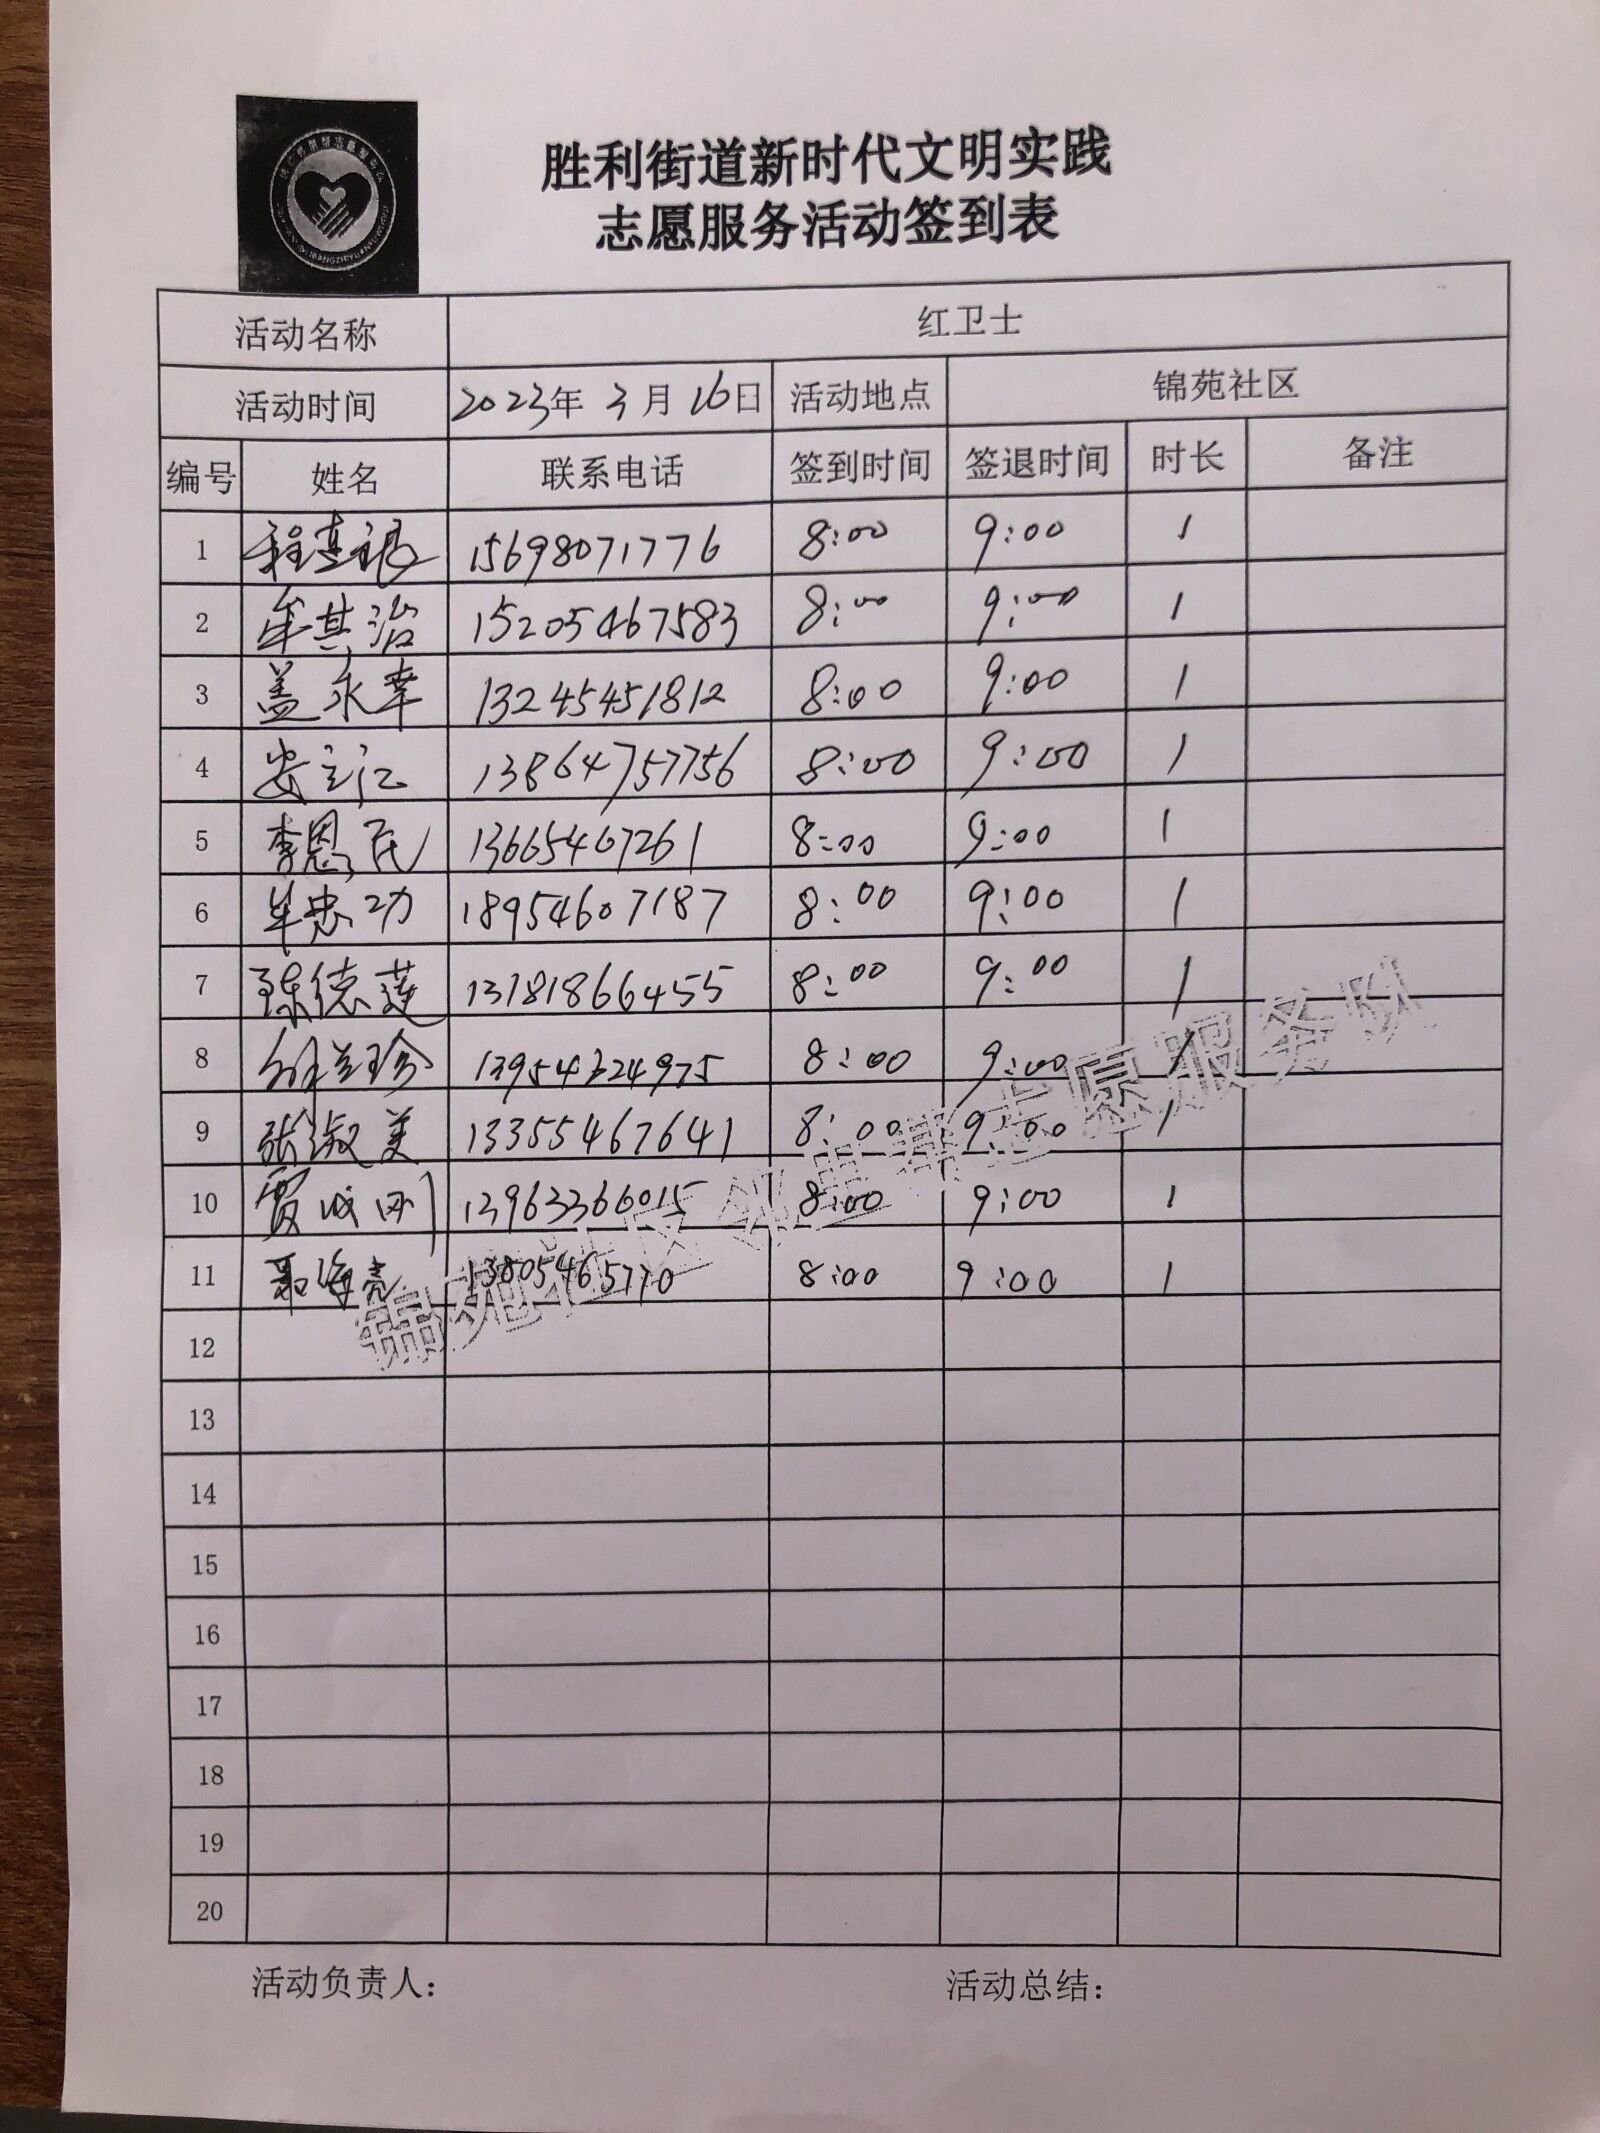 胜利街道新时代文明实践
志愿服务活动签到表
活动名称 红卫士
活动时间 2023年 3月 16日 活动地点 锦苑社区
编号 姓名 联系电话 签到时间 签退时间 时长 备注
1 15698071776 8:00 9:00 1
2 牟其治 15205467583 8:00 9:00 1
3 盖永幸 13245451812 8:00 9:00 1
4 安立江 13864757756 8:00 9:00 1
5 李恩民 13665467261 8:00 9:00 1
6 牟忠功 18954607187 8:00 9:00 1
7 陈德莲 13181866455 8:00 9:00 1
8 13954324975 8:00 9:00 1
9 张淑美 13355467641 8:00 9:00 1
10 贾成刚 13963366015 8:00 9:00 1
11 海亮 13805465770 8:00 9:00 1
12
13
14
15
16
17
18
19
20
活动负责人： 活动总结：
锦苑社区邻里帮志愿服务队